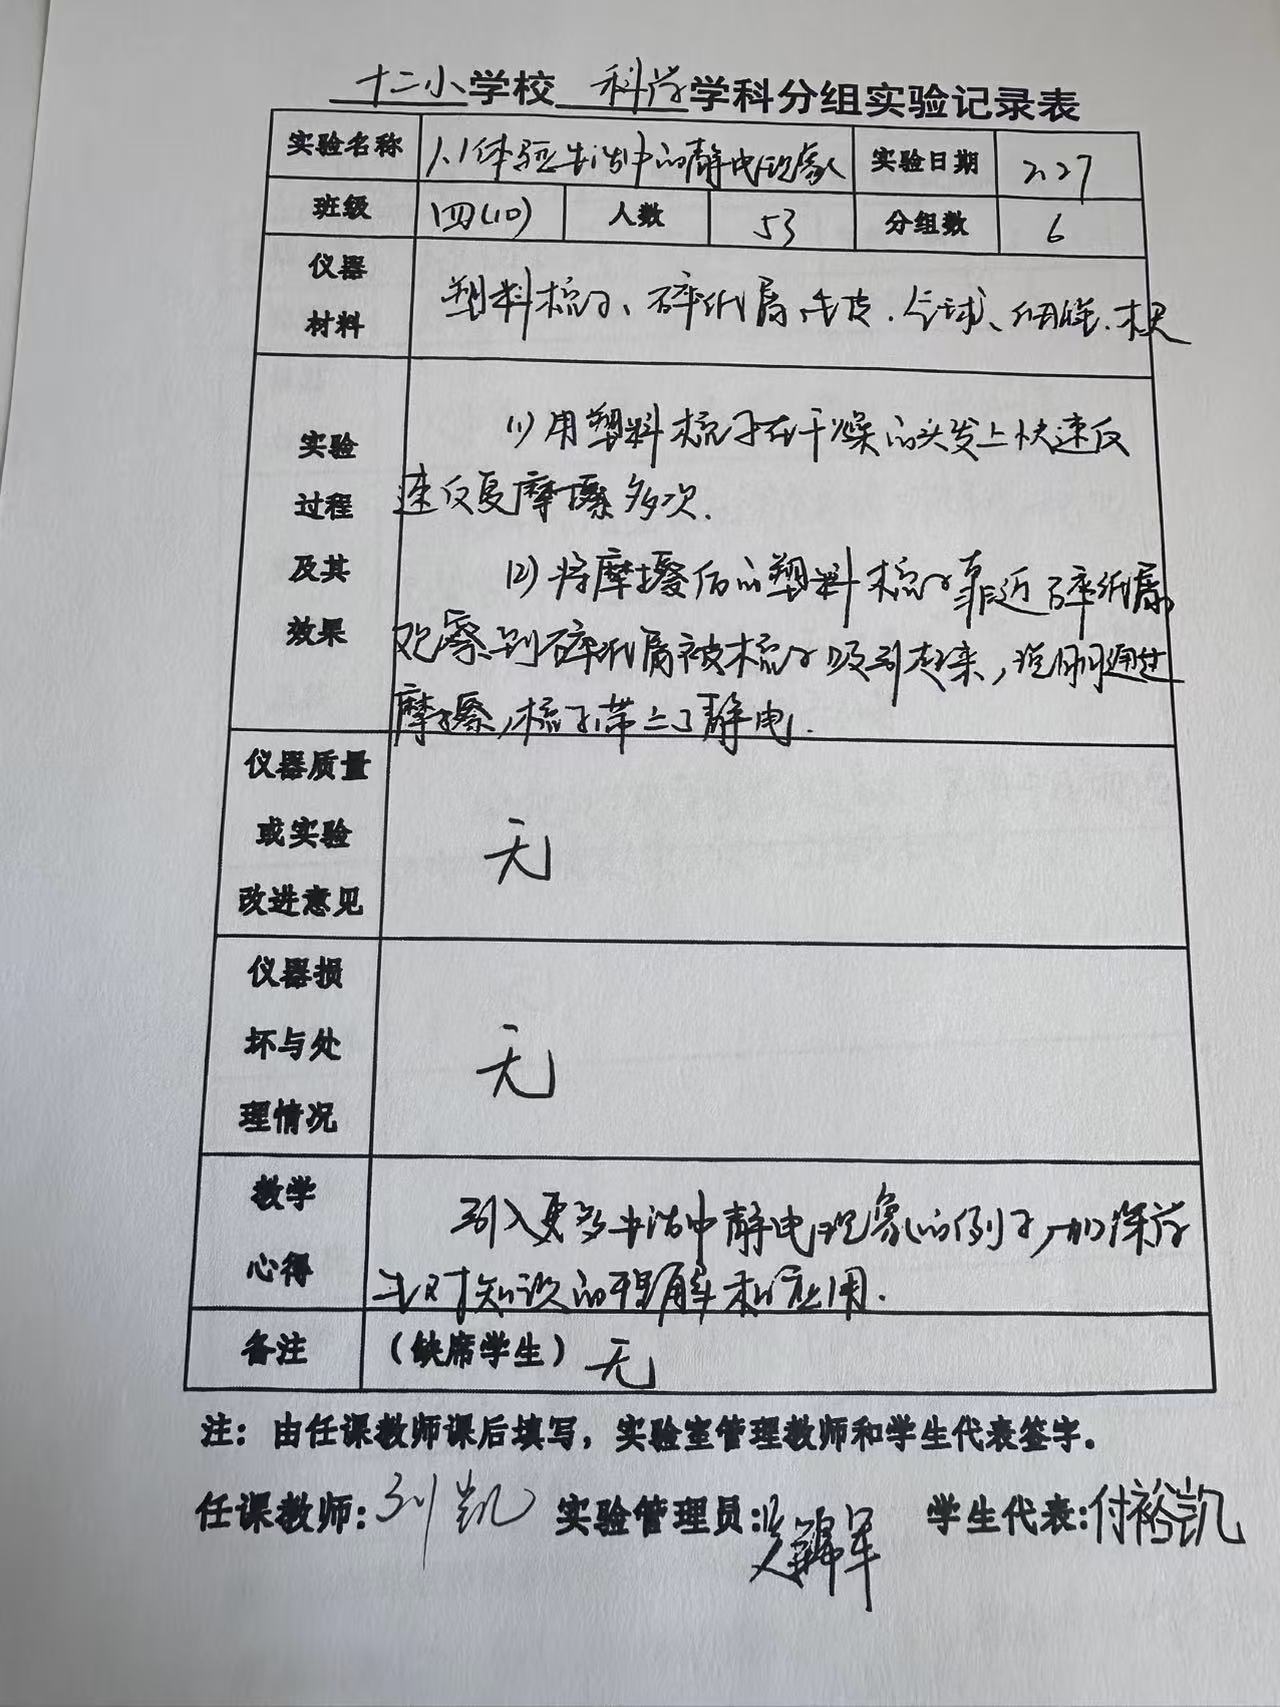 十二小学校 科学学科分组实验记录表
实验名称 1.1体验生活中的静电现象 实验日期 2.27
班级 四(10) 人数 53 分组数 6
仪器
材料
塑料梳子、碎纸屑、毛皮、气球、细线、木尺
实验
过程
及其
效果
(1)用塑料梳子在干燥的头发上快速反
速反复摩擦多次.
(2)将摩擦后的塑料梳子靠近碎纸屑,
观察到碎纸屑被梳子吸引起来,说明通过
摩擦,梳子带上了静电.
仪器质量
或实验
改进意见
无
仪器损
坏与处
理情况
无
教学
心得
引入更多生活中静电现象的例子,加深学
生对知识的理解和应用.
备注 (缺席学生) 无
注：由任课教师课后填写，实验室管理教师和学生代表签字。
任课教师: 刘凯 实验管理员: 学生代表: 付裕凯